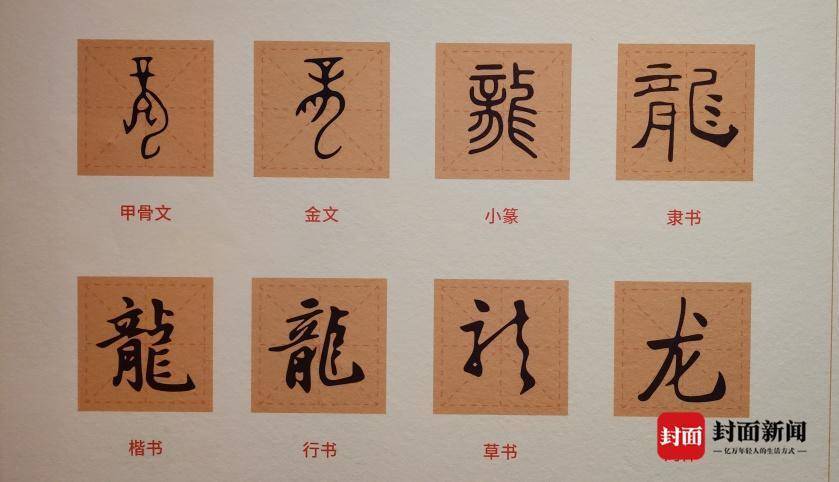 龍 龍 龍 龍
甲骨文 金文 小篆 隶书
龍 龍 龙 龙
楷书 行书 草书
封面 封面新闻
亿万年轻人的生活方式